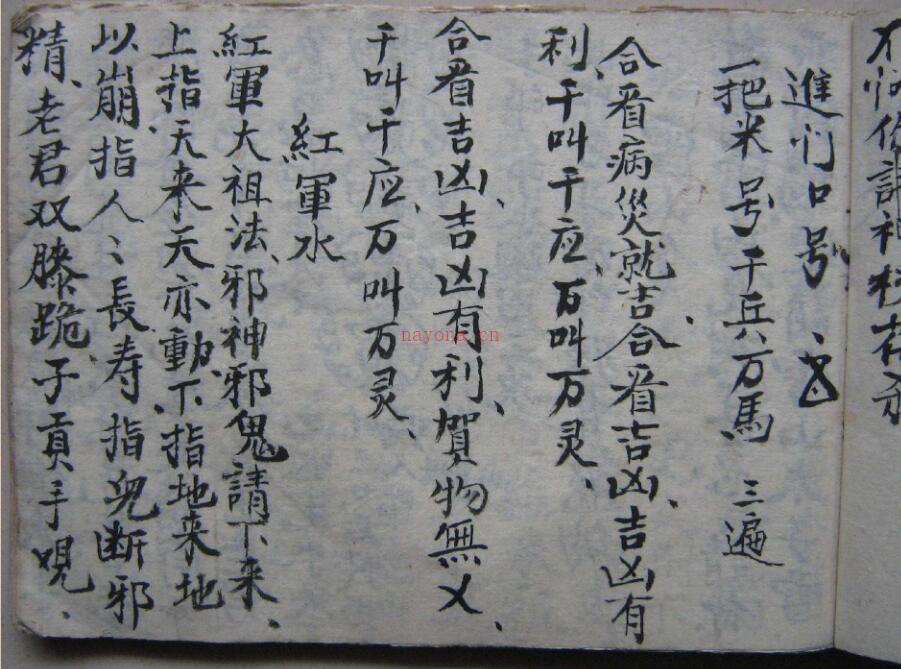 進们口号
一把米号千兵万馬 三遍
合看病災就吉合看吉凶、吉凶有
利、千叫千应、万叫万灵、
合看吉凶、吉凶有利、賀物無义、
千叫千应、万叫万灵、
紅軍水
紅軍大祖法、邪神邪鬼請下来、
上指天来天亦動、下指地来地
以崩、指人〻長寿指鬼断邪
精、老君双膝跪、子貢手
nayona.cn